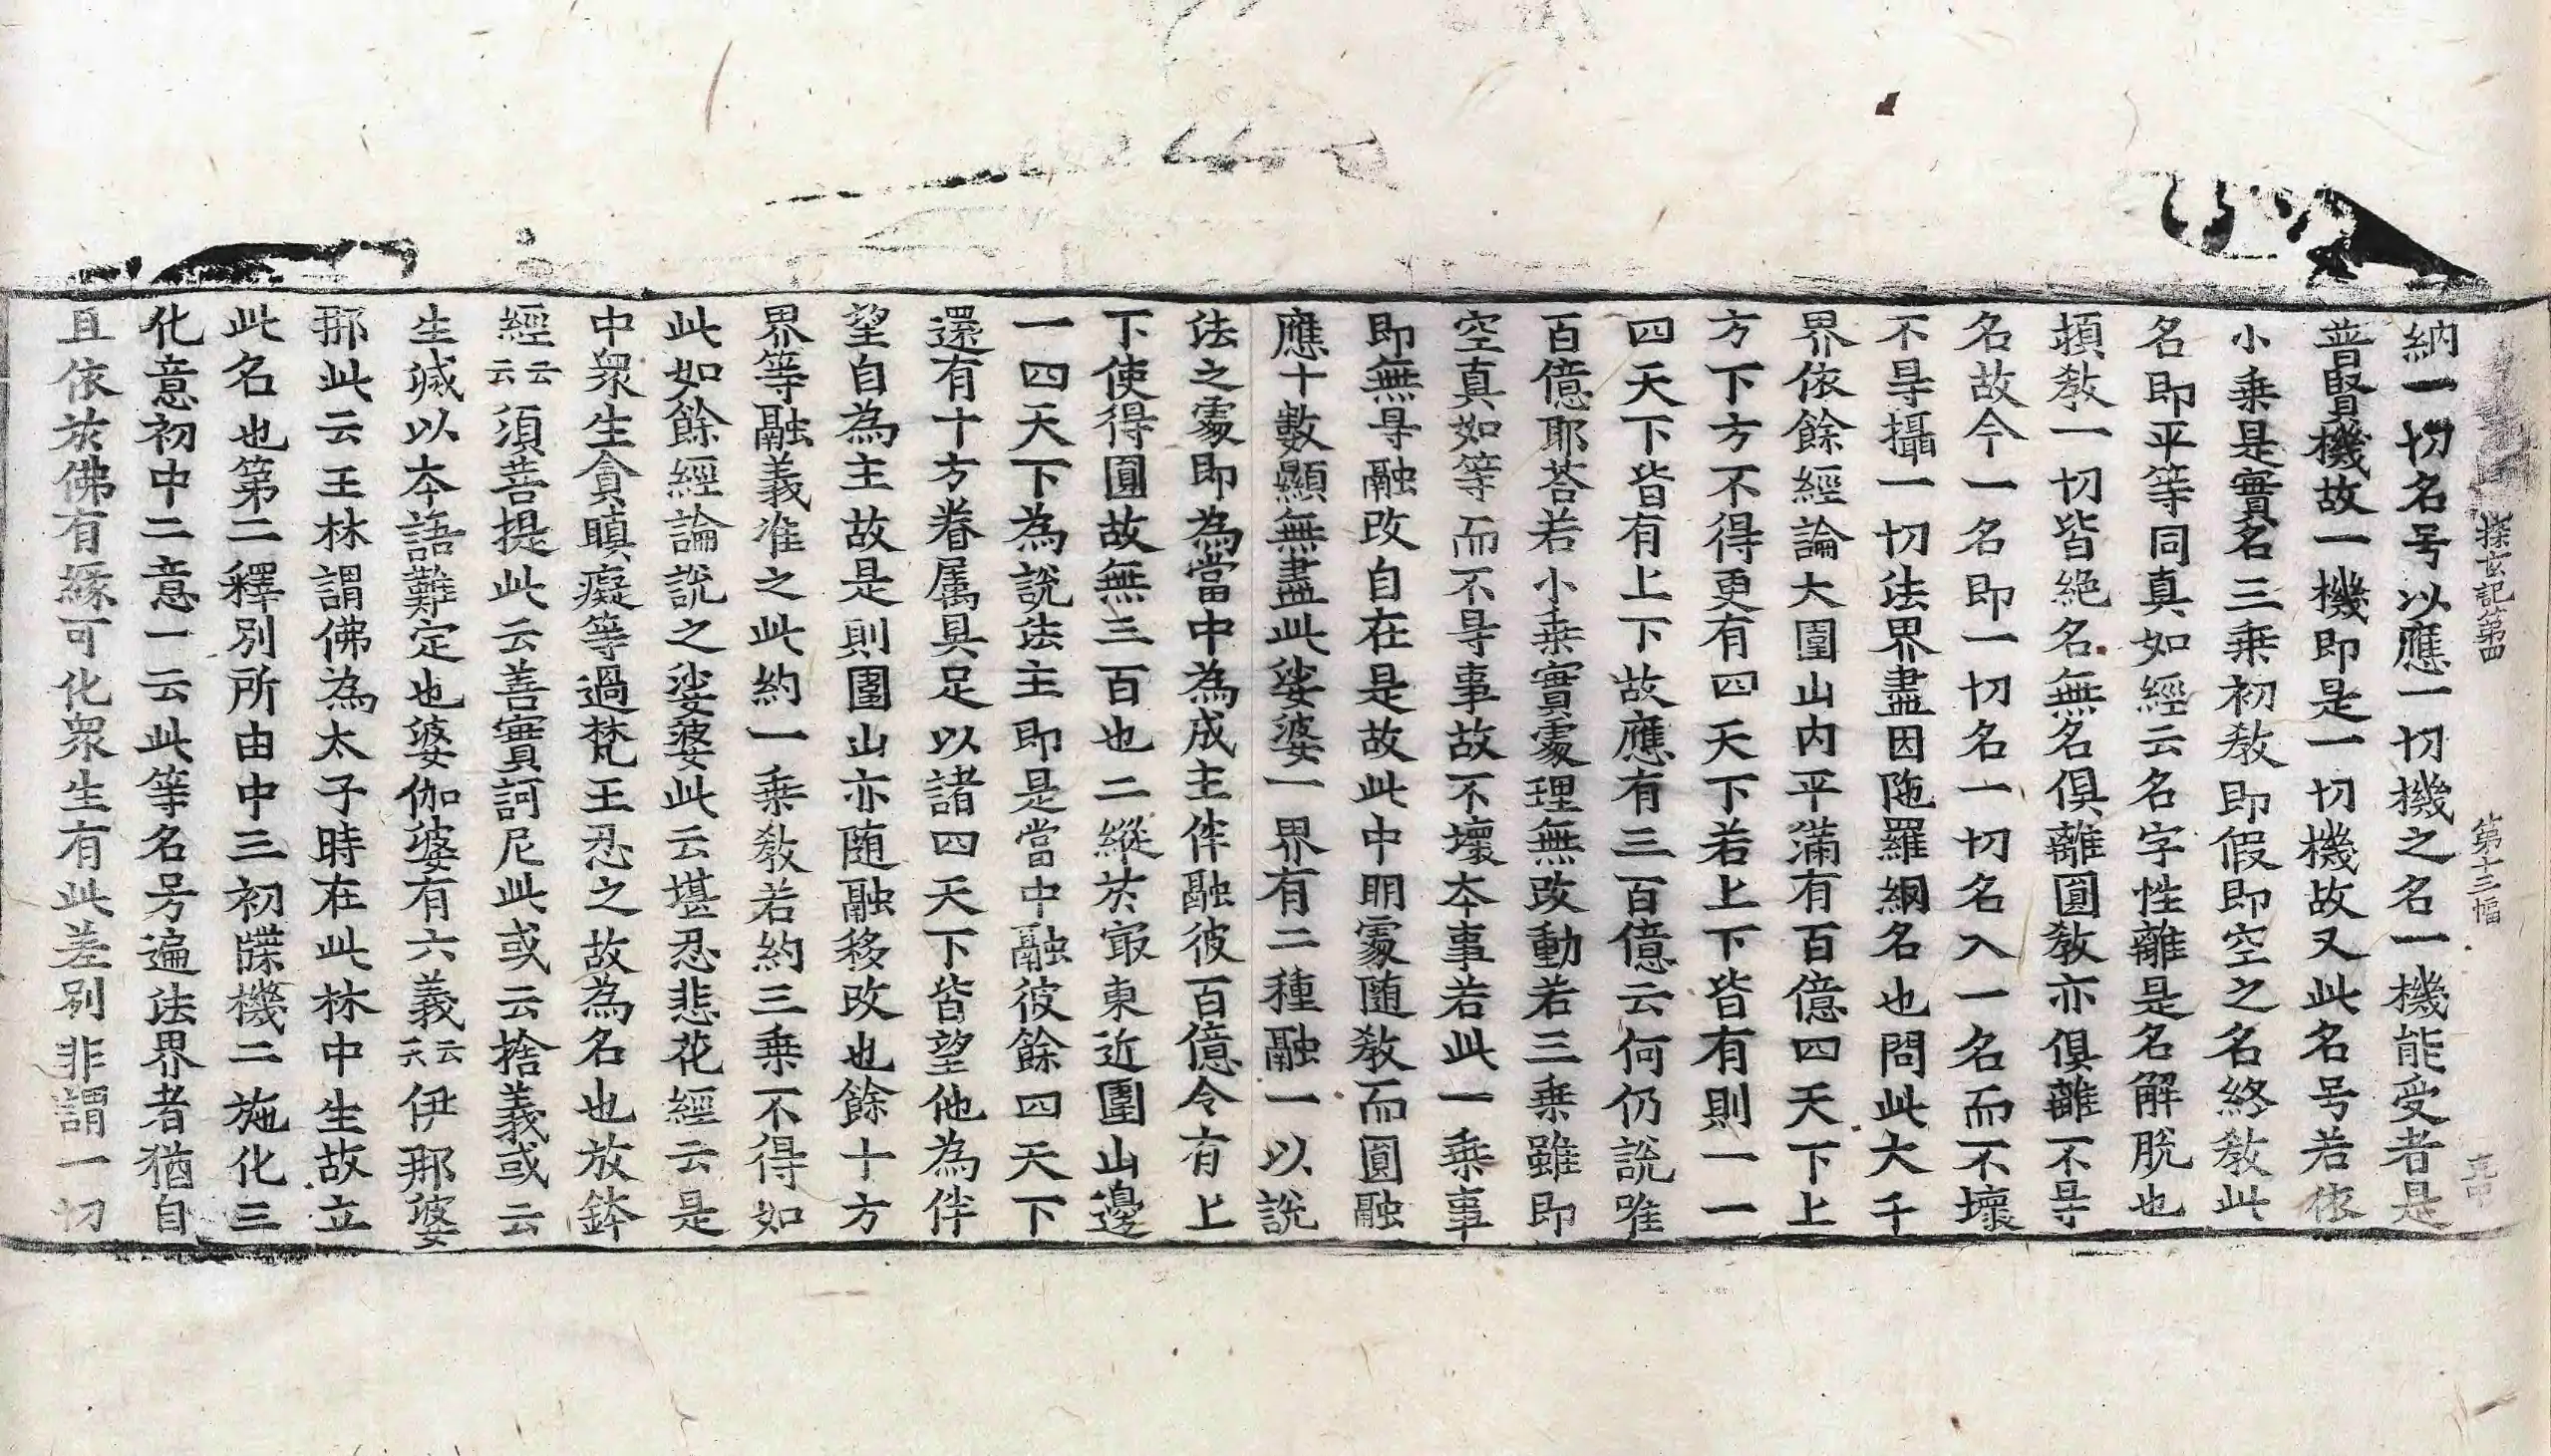 探玄記第四 第十三幅
納一切名号以應一切機之名一機能受者是
普賢機故一機即是一切機故又此名号若依
小乗是實名三乗初教即假即空之名終教此
名即平等同真如經云名字性離是名解脱也
頓教一切皆絶名無名俱離圓教亦俱離不㝵
名故令一名即一切名一切名入一名而不壞
不㝵攝一切法界盡因陁羅網名也問此大千
界依餘經論大圍山内平滿有百億四天下上
方下方不得更有四天下若上下皆有則一一
四天下皆有上下故應有三百億云何仍說唯
百億耶荅若小乗實䖏理無改動若三乗雖即
空真如等而不㝵事故不壞本事若此一乗事
即無㝵融改自在是故此中明䖏随教而圓融
應十數顯無盡此娑婆一界有二種融一以說
法之䖏即為當中為成主伴融彼百億令有上
下使得圓故無三百也二縱於㝡東近圍山邊
一四天下為說法主即是當中融彼餘四天下
還有十方眷属具足以諸四天下皆望他為伴
望自為主故是則圍山亦随融移改也餘十方
界等融義准之此約一乗教若約三乗不得如
此如餘經論說之娑婆此云堪忍悲花經云是
中衆生貪瞋癡等過梵王忍之故為名也放鉢
經云云須菩提此云善實訶尼此或云捨義或云
生滅以本語難定也婆伽婆有六義云云伊那婆
那此云王林謂佛為太子時在此林中生故立
此名也第二釋別所由中三初牒機二施化三
化意初中二意一云此等名号遍法界者猶自
且依於佛有縁可化衆生有此差別非謂一切